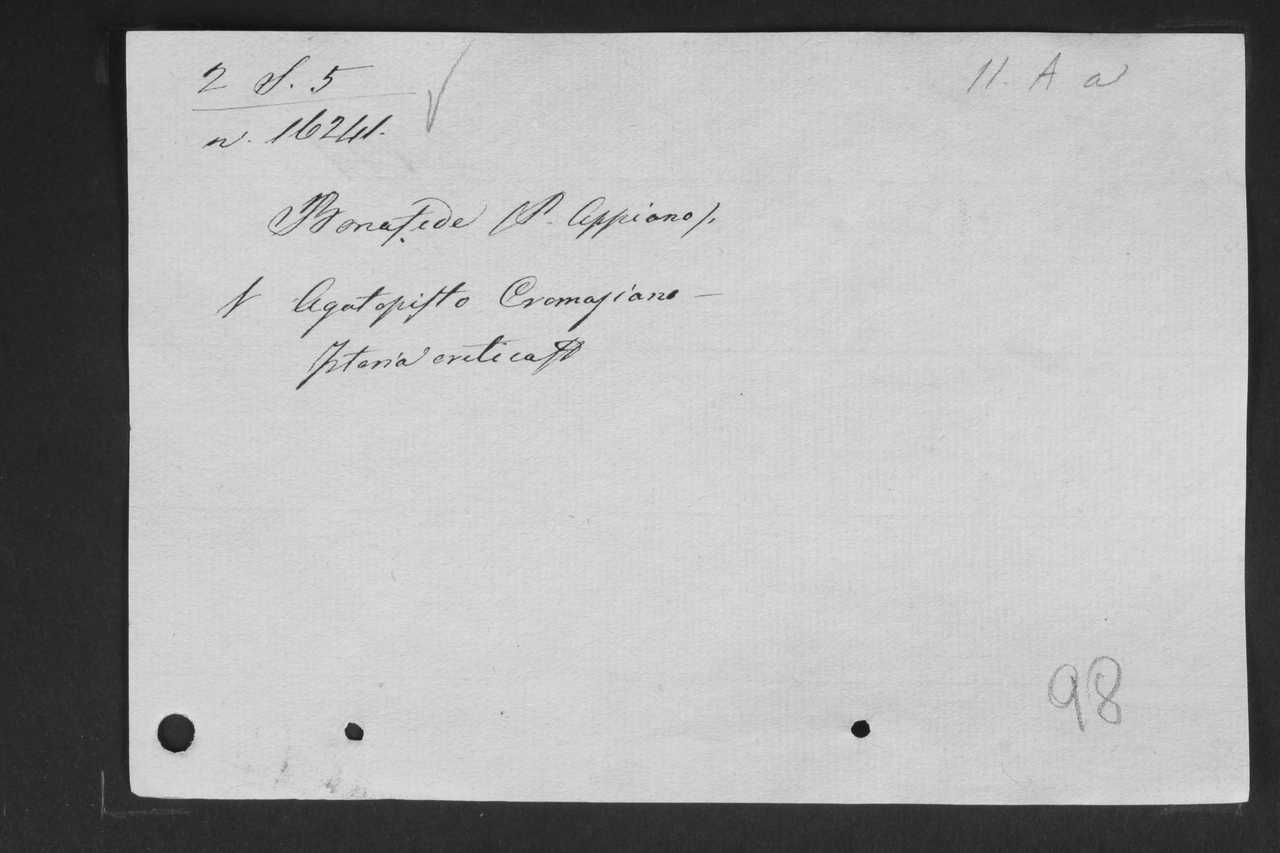 2 S. 5
n. 16241.
11. A a
Bonafede (P. Appiano).
V Agatopisto Cromaziano —
Istoria critica
98